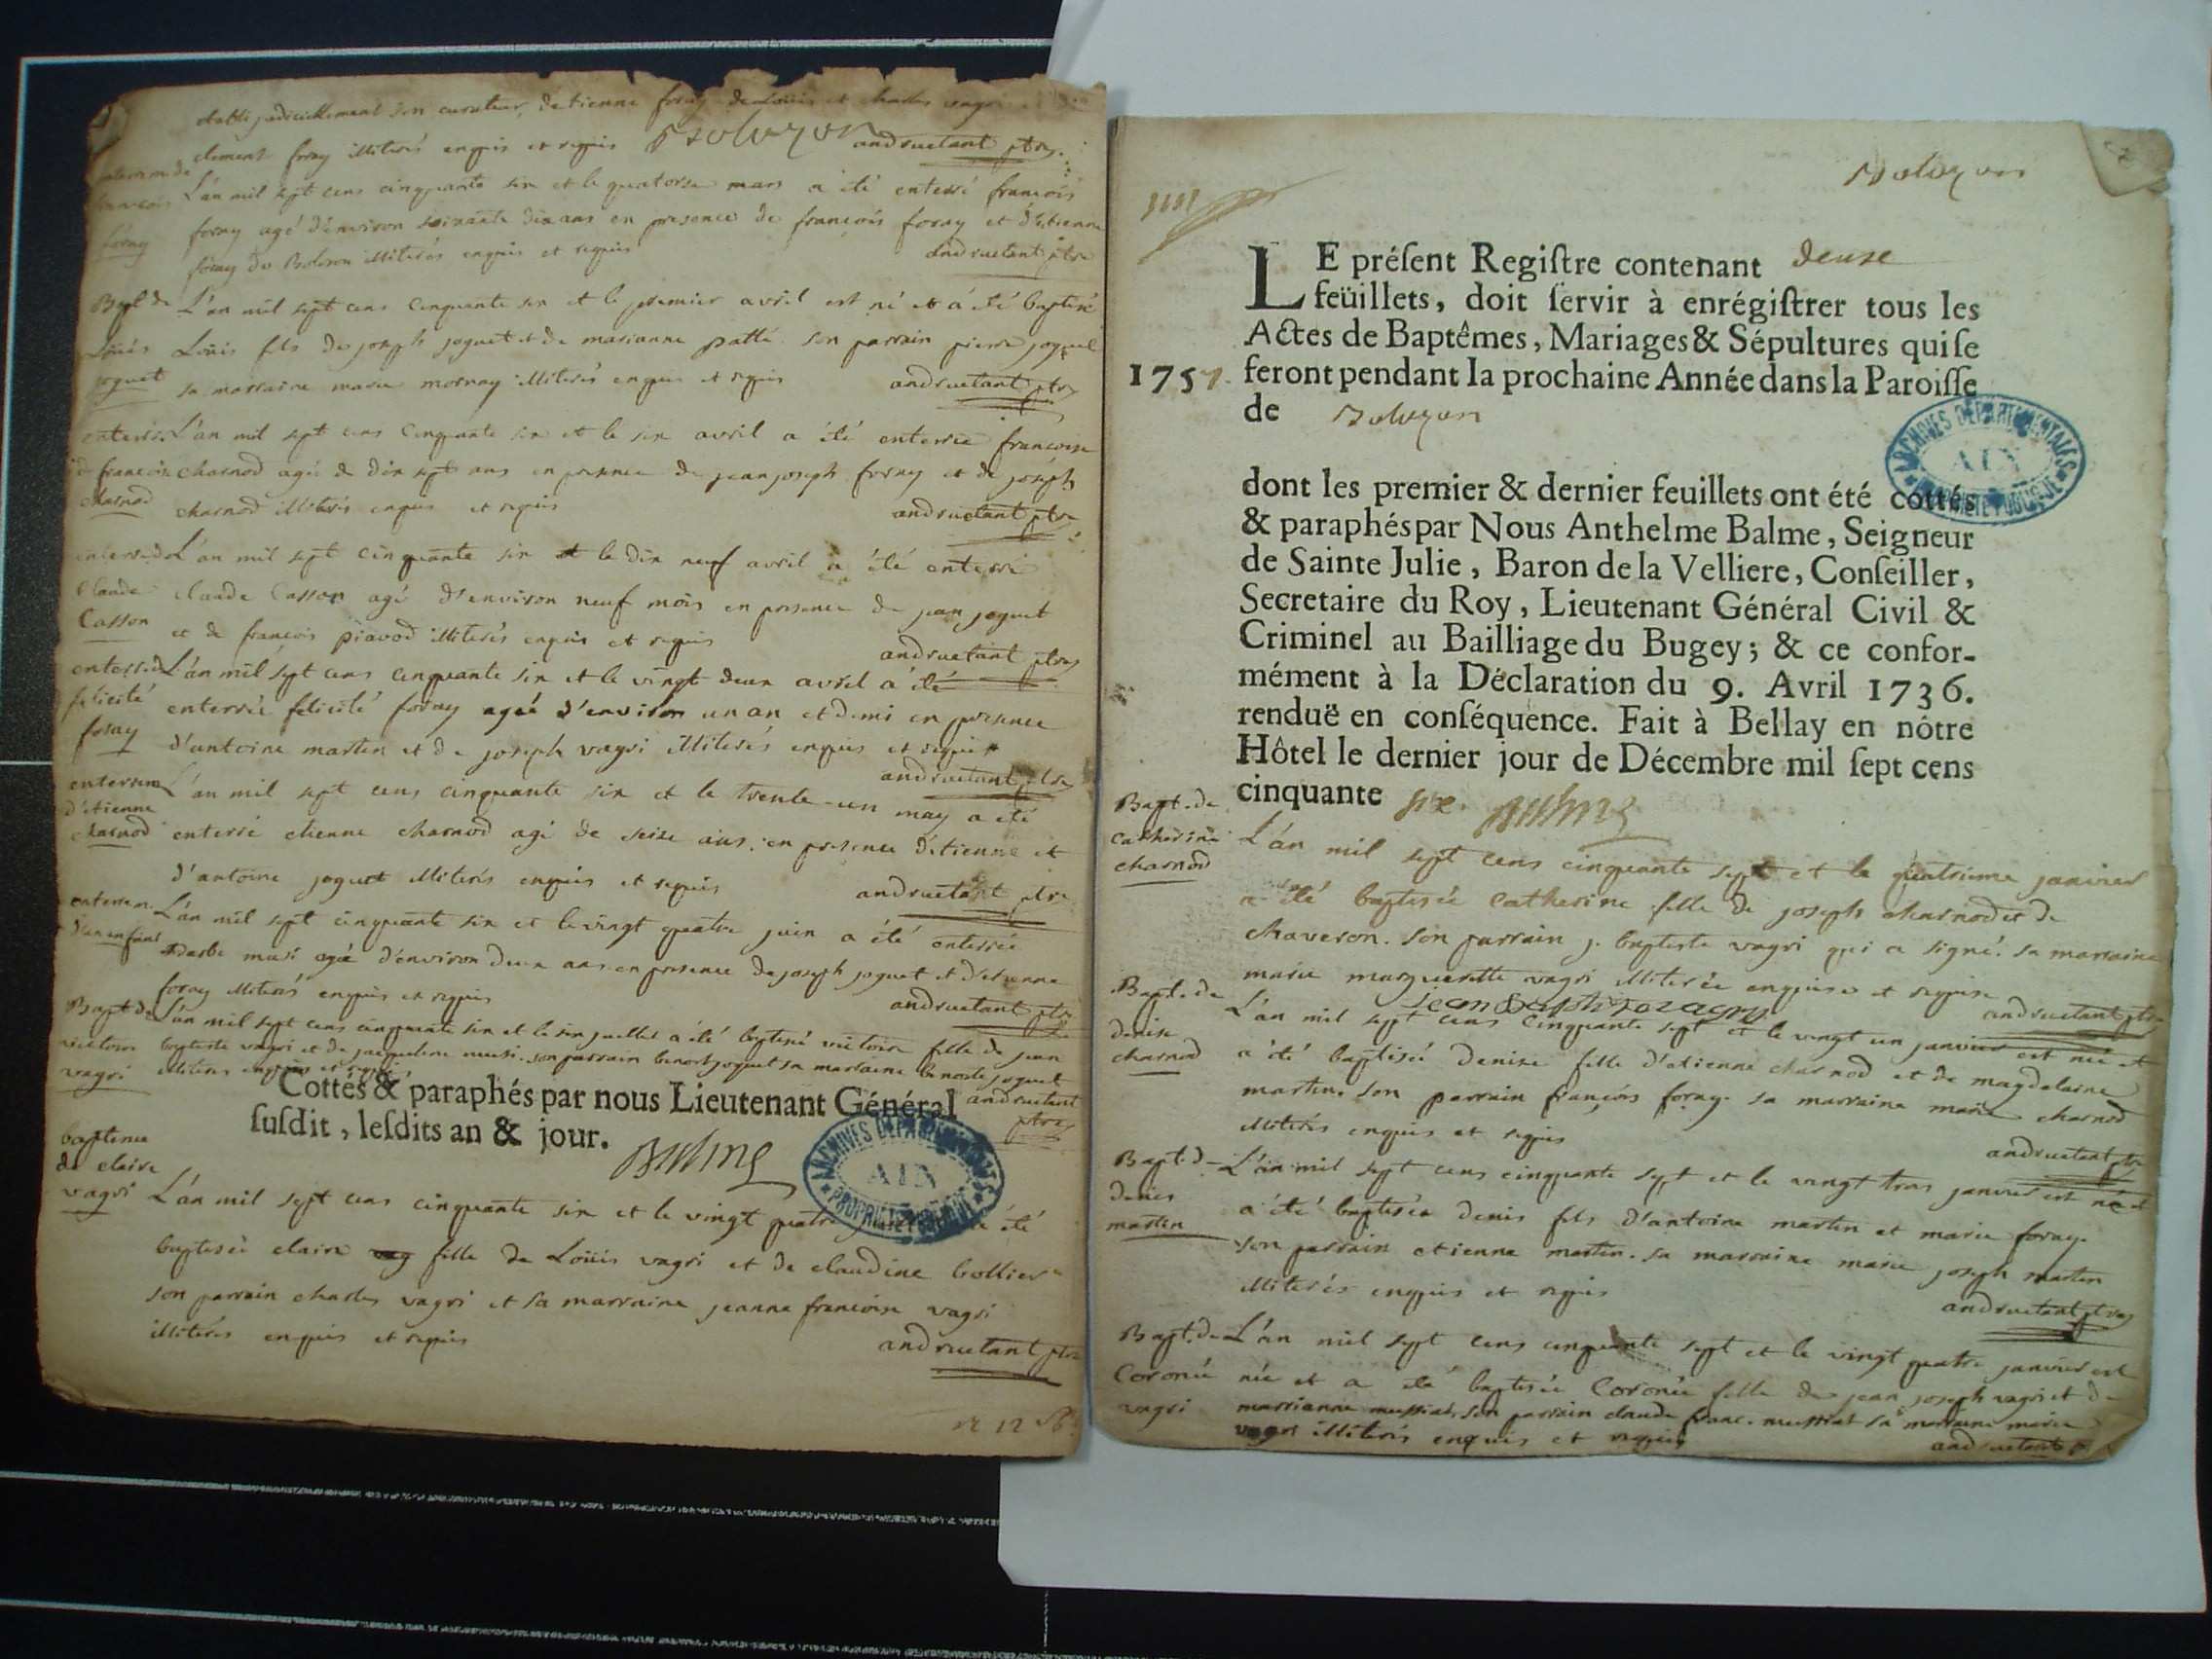 établi judiciellement son curateur, d'etienne foray de Loüis et charles vagri
clement foray illiterés enquis et requis Bolozon andruetant ptre
enterrem. de
francois
foray
L'an mil sept cens cinquante six et le quatorse mars a été enterré francois
foray agé d'environ soixante dix ans en presence de francois foray et d'etienne
foray de Boloson illiterés enquis et requis andruetant ptre
Bapt. de
Loüis
joguet
L'an mil sept cens cinquante six et le premier avril est né et a été baptisé
Loüis fils de joseph joguet et de marianne patté son parrain pierre joguet
sa marraine marie mornay illiterés enquis et requis andruetant ptre
enterré.
de francoise
charnod
L'an mil sept cens cinquante six et le six avril a été enterrée francoise
charnod agée de dix sept ans en presence de jean joseph foray et de joseph
charnod illiterés enquis et requis andruetant ptre
enterré. de
Claude
Casson
L'an mil sept cinquante six et le dix neuf avril a été enterré
claude Casson agé d'environ neuf mois en presence de jean joguet
et de francois piavod illiterés enquis et requis andruetant ptre
enterré. de
felicité
foray
L'an mil sept cens cinquante six et le vingt deux avril a été
enterrée felicité foray agée d'environ un an et demi en presence
d'antoine martin et de joseph vagri illiterés enquis et requis
andruetant ptre
enterrem.
d'etienne
charnod
L'an mil sept cens cinquante six et le trente un may a été
enterré etienne charnod agé de seise ans, en presence d'etienne et
d'antoine joguet illiterés enquis et requis andruetant ptre
enterrem.
d'un enfant
L'an mil sept cinquante six et le vingt quatre juin a été enterrée
Barbe musi agée d'environ deux ans en presence de joseph joguet et d'etienne
foray illiterés enquis et requis andruetant ptre
Bapt. de
victoire
vagri
L'an mil sept cens cinquante six et le six juillet a été baptisé victoire fille de jean
baptiste vagri et de jacqueline musi. son parrain benoit joguet sa marraine benoite joguet
illiterés enquis et requis andruetant
ptre
Cottés & paraphés par nous Lieutenant Général
susdit, lesdits an & jour. Balme
ARCHIVES DEPARTEMENTALES
AIN
PROPRIETE PUBLIQUE
bapteme
de claire
vagri
L'an mil sept cens cinquante six et le vingt quatre a été
baptisée claire fille de Loüis vagri et de claudine bollier
son parrain charles vagri et sa marraine jeanne francoise vagri
illiterés enquis et requis
andruetant ptre
Bolozon
LE présent Registre contenant deux
feüillets, doit servir à enrégistrer tous les
Actes de Baptêmes, Mariages & Sépultures qui se
1757. feront pendant la prochaine Année dans la Paroisse
de Bolozon
ARCHIVES DEPARTEMENTALES
AIN
PROPRIETE PUBLIQUE
dont les premier & dernier feuillets ont été cottés
& paraphés par Nous Anthelme Balme, Seigneur
de Sainte Julie, Baron de la Velliere, Conseiller,
Secretaire du Roy, Lieutenant Général Civil &
Criminel au Bailliage du Bugey; & ce confor-
mément à la Déclaration du 9. Avril 1736.
renduë en conséquence. Fait à Bellay en nôtre
Hôtel le dernier jour de Décembre mil sept cens
cinquante six. Balme
Bapt. de
catherine
charnod
L'an mil sept cens cinquante sept et le quatrieme janvier
a été baptisée catherine fille de joseph charnod et de
chaveron. son parrain j. baptiste vagri qui a signé. sa marraine
marie marguerite vagri illiterée enquise et requise
jean Baptiste vagry andruetant ptre
Bapt. de
denise
charnod
L'an mil sept cens cinquante sept et le vingt un janvier est née et
a été baptisée denise fille d'etienne charnod et de magdelaine
martin. son parrain francois foray. sa marraine marie charnod
illiterés enquis et requis
andruetant ptre
Bapt. de
denis
martin
L'an mil sept cens cinquante sept et le vingt trois janvier est né et
a été baptisée denis fils d'antoine martin et marie foray.
son parrain etienne martin. sa marraine marie joseph martin
illiterés enquis et requis
andruetant ptre
Bapt. de
Coronée
vagri
L'an mil sept cens cinquante sept et le vingt quatre janvier est
née et a été baptisée Coronée fille de jean joseph vagri et de
marrianne mussiat, son parrain claude franc. mussiat sa marraine marie
vagri illiterés enquis et requis
andruetant p